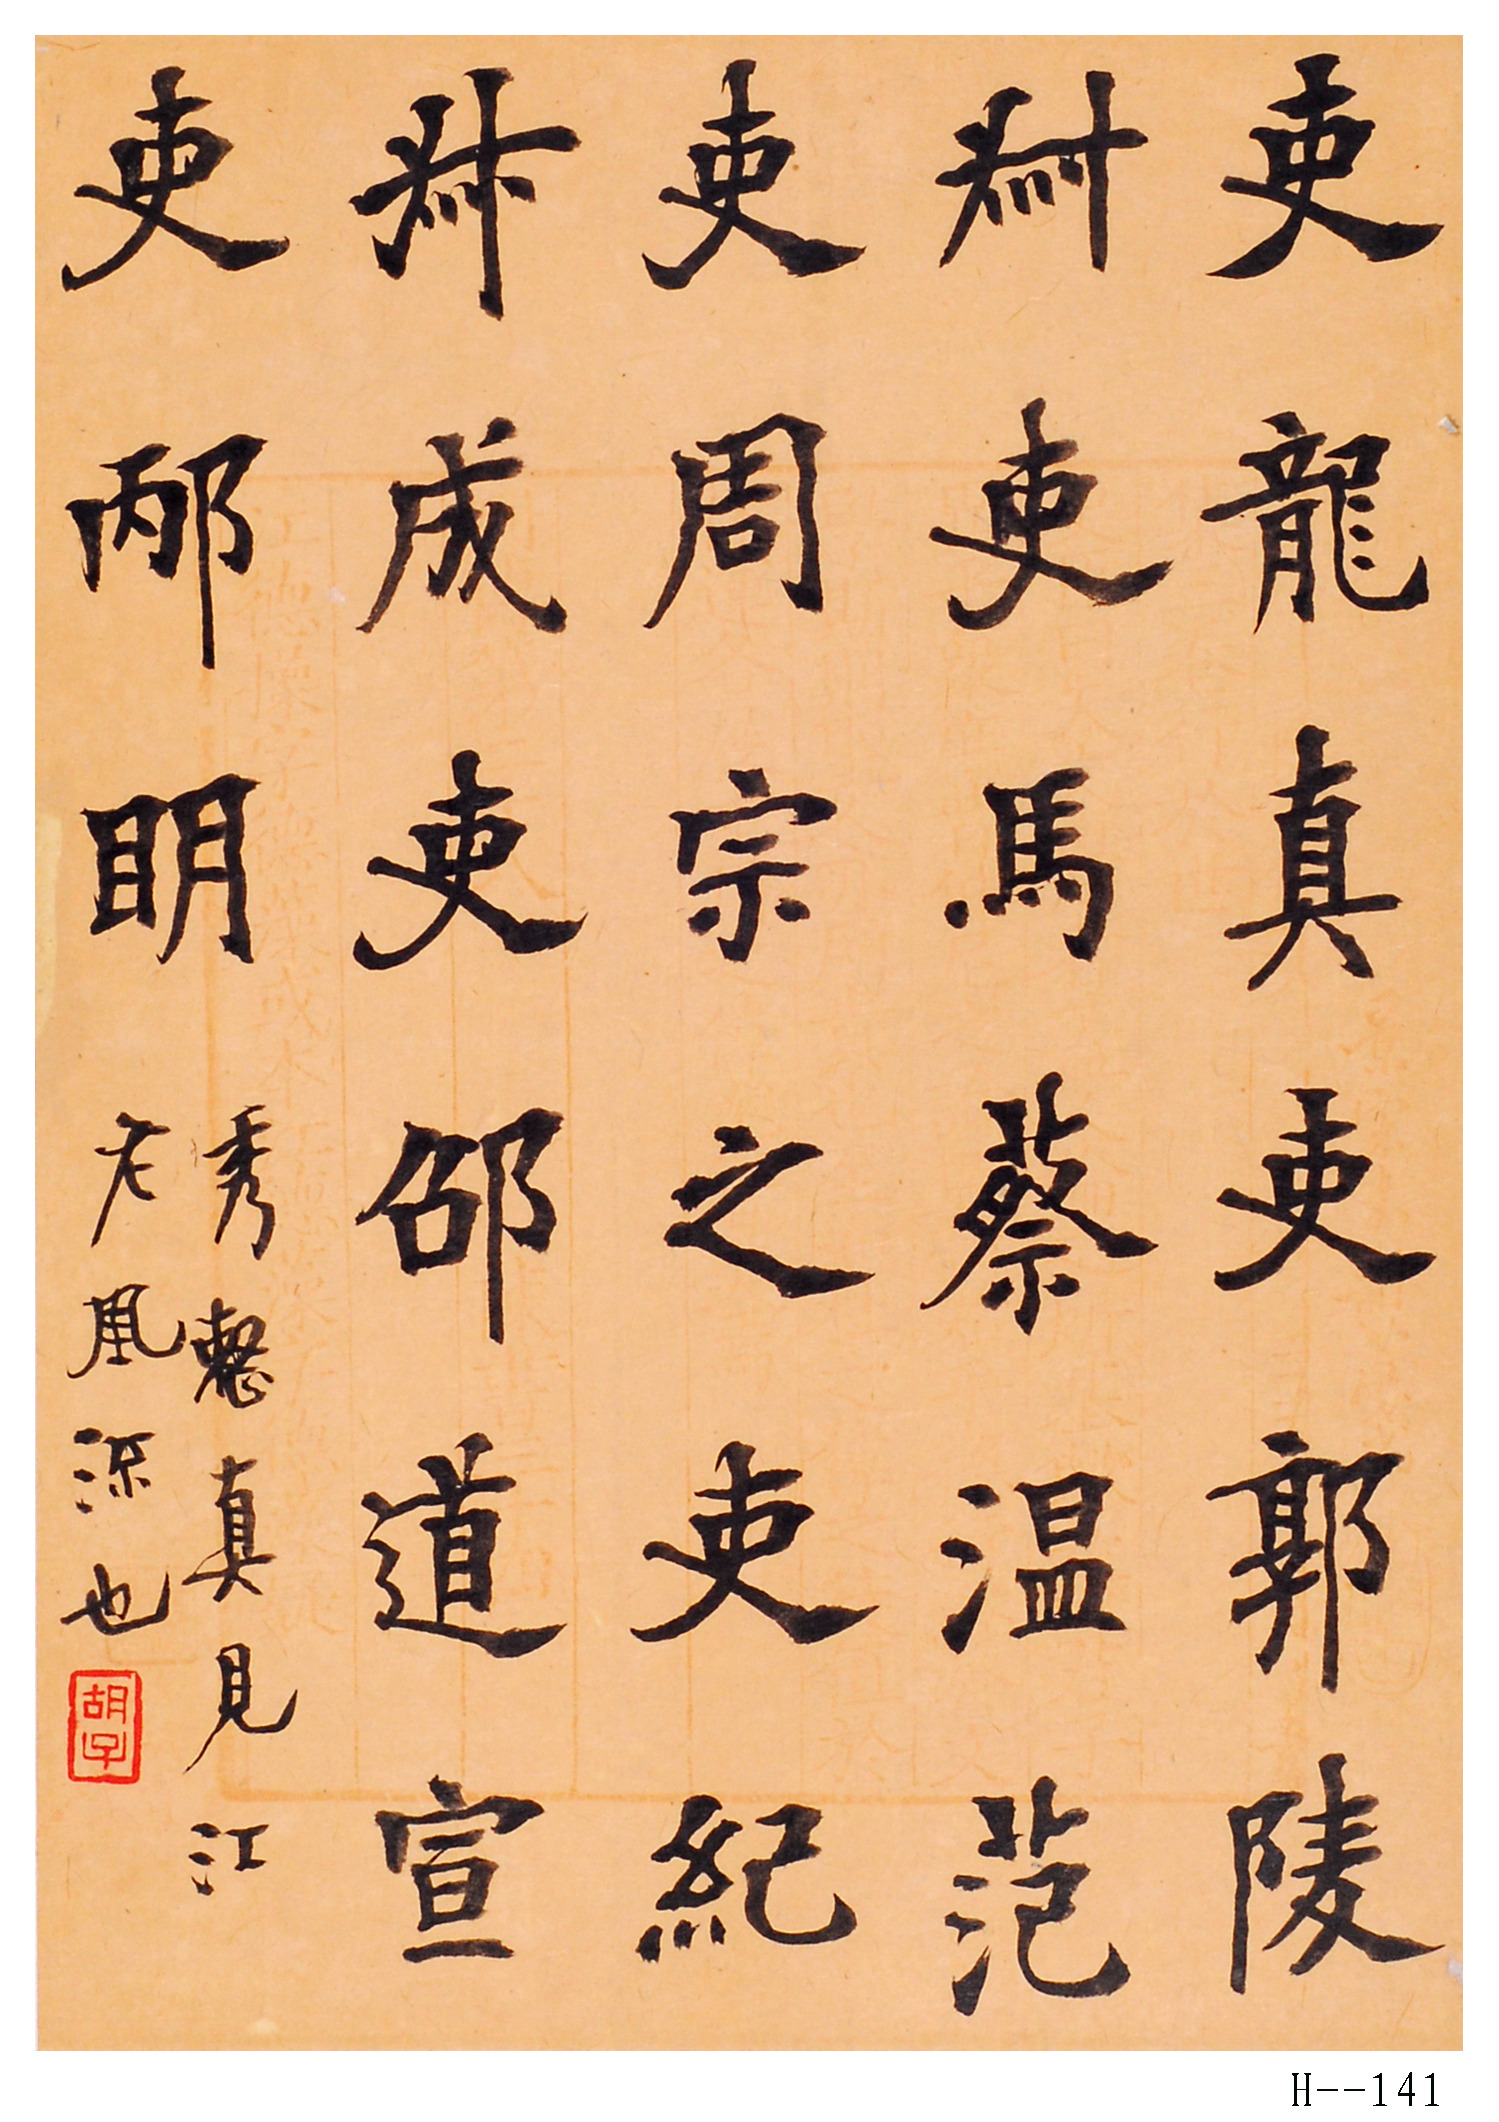 吏龍真吏郭陵
㪺吏馬蔡温范
吏周宗之吏紀
㪺成吏邵道宣
吏邴明
秀整真見江
左風流也
胡子
H--141